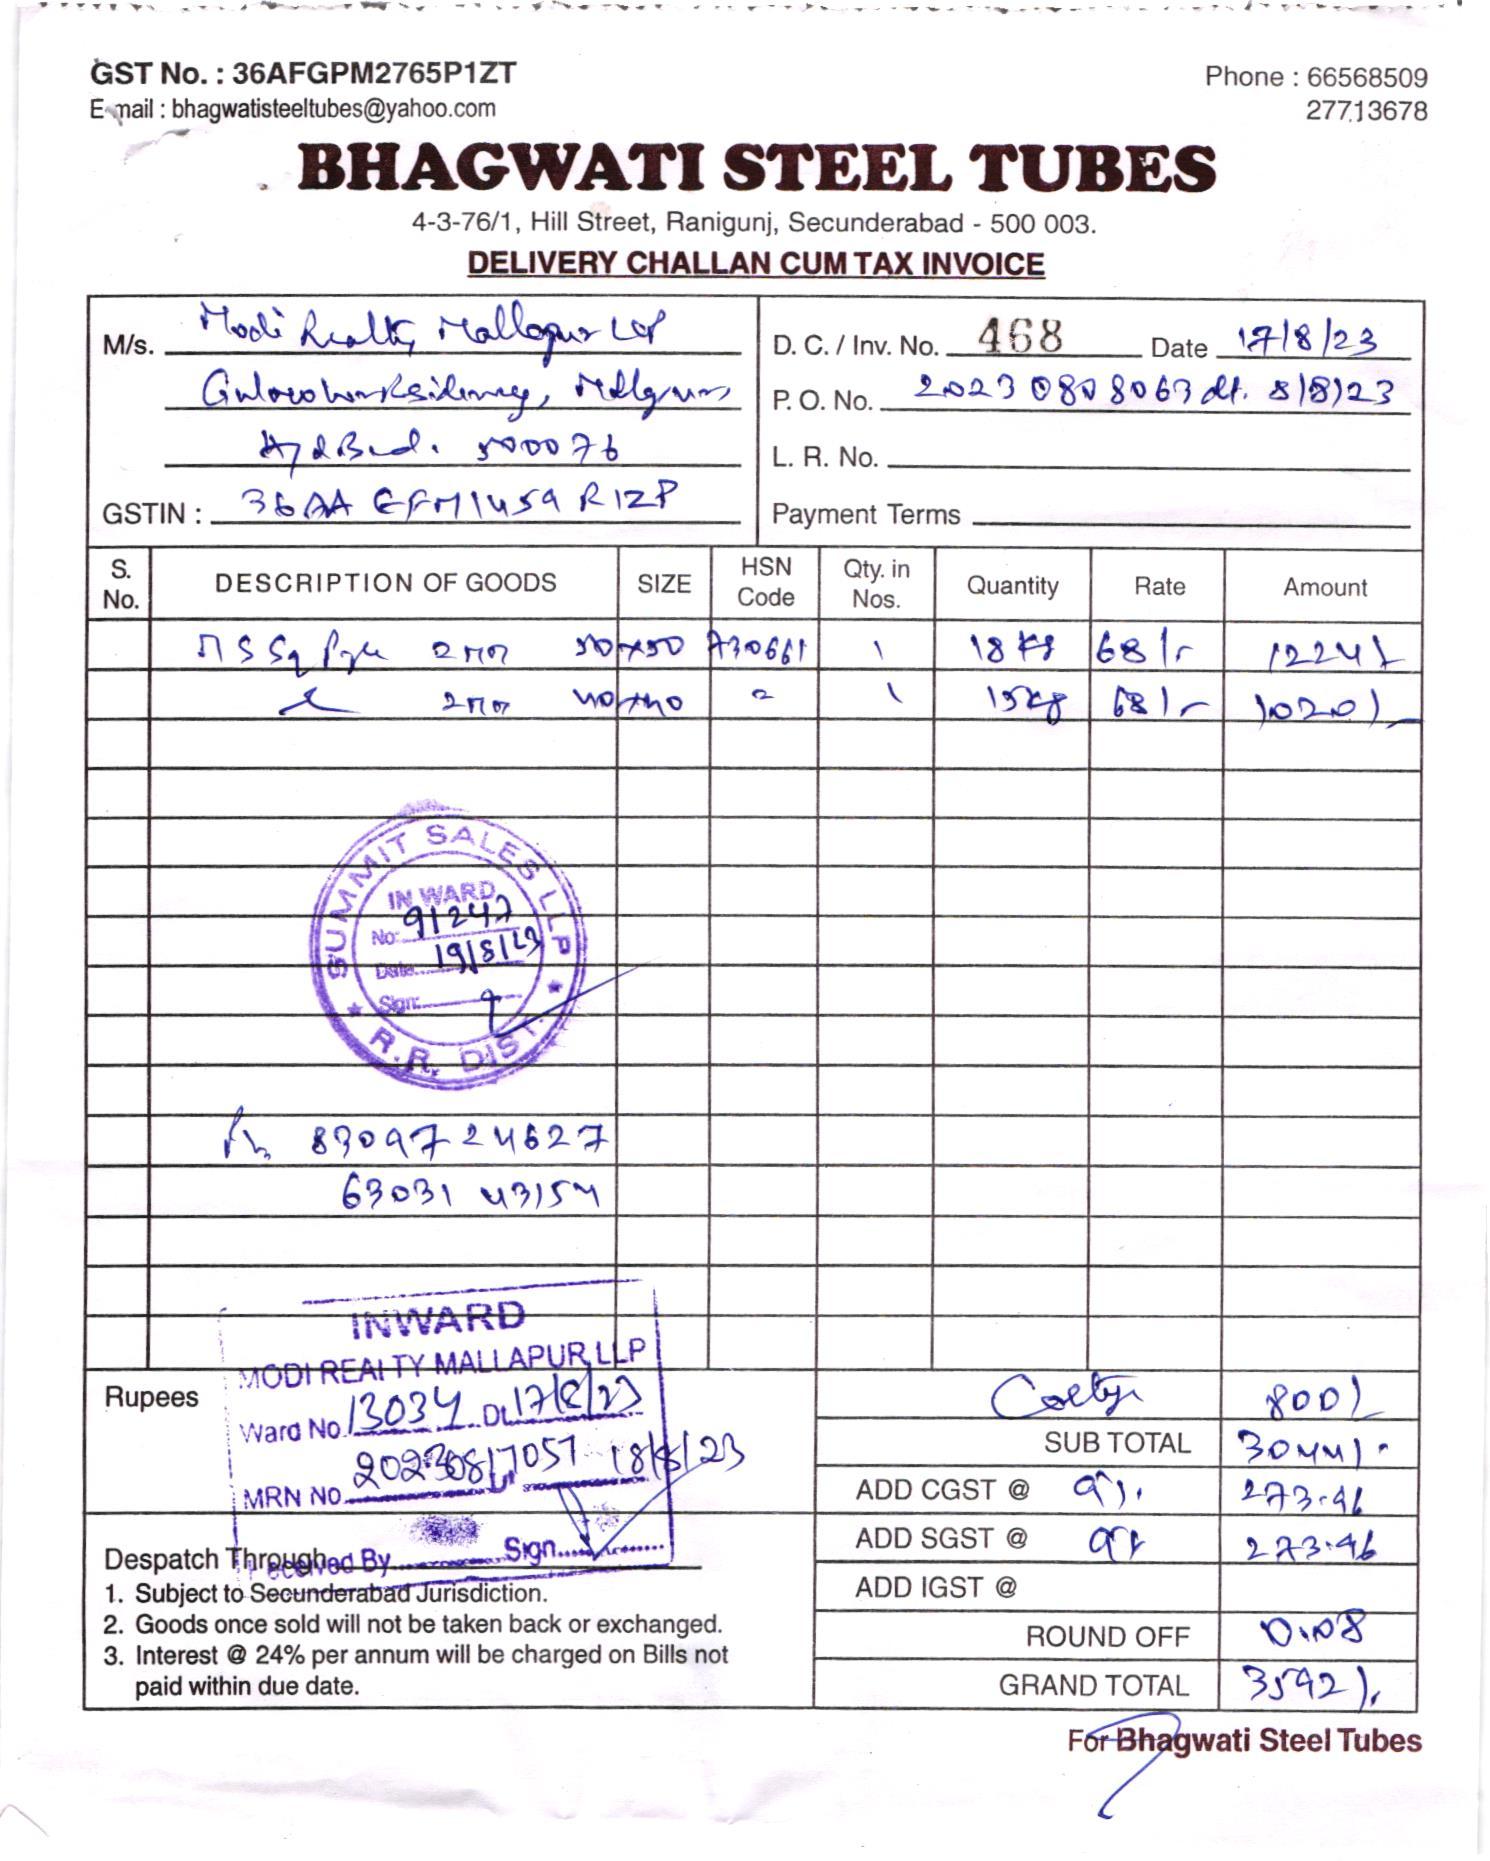 GST No. : 36AFGPM2765P1ZT
Phone : 66568509
E-mail : bhagwatisteeltubes@yahoo.com
27713678
BHAGWATI STEEL TUBES
4-3-76/1, Hill Street, Ranigunj, Secunderabad - 500 003.
DELIVERY CHALLAN CUM TAX INVOICE
M/s. Modi Realty Mallapur LLP
Residency,
500076
GSTIN : 36AAEFM1459R1ZP
D. C. / Inv. No. 468 Date 17/8/23
P. O. No. 20230808063 dt. 8/8/23
L. R. No.
Payment Terms
S. No. DESCRIPTION OF GOODS SIZE HSN Code Qty. in Nos. Quantity Rate Amount
MS Sq 2mm 50x50 730661 1 18 Kg 68/- 1224/-
2mm 40x40 1 15 Kg 68/- 1020/-
SUMMIT SALES LLP
INWARD
No: 91247
Date 19/8/23
Sign:
R.R. DIST.
Ph 8309724627
63031 43154
INWARD
MODI REALTY MALLAPUR LLP
Ward No 13034 Dt 17/8/23
MRN NO 20230817057 18/8/23
Received By Sign
Rupees
800/-
SUB TOTAL 3044/-
ADD CGST @ 9%. 273.96
ADD SGST @ 9% 273.96
ADD IGST @
ROUND OFF 0.08
GRAND TOTAL 3592/.
Despatch Through
1. Subject to Secunderabad Jurisdiction.
2. Goods once sold will not be taken back or exchanged.
3. Interest @ 24% per annum will be charged on Bills not
paid within due date.
For Bhagwati Steel Tubes